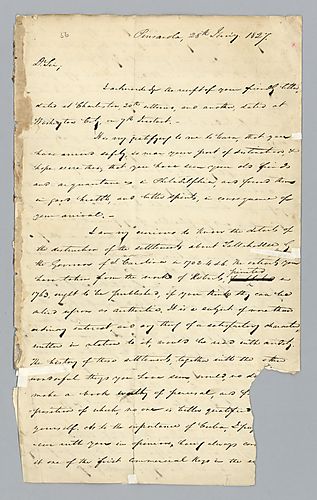 56
Pensacola, 28th Jany 1827.
Dr Sir,
I acknowledge the receipt of your friendly letter,
dated at Charleston 20th ultimo, and another, dated at
Washington City, on 7th Instant. -
It is very gratifying to me to learn that you
have arrived safely so near your port of destination, &
hope soon to hear, that you have seen your old friends
and acquaintance in Philadelphia, and found them
in good health and better spirits, in consequence of
your arrival. -
I am very curious to know the details of
the destruction of the settlements about Tallahassee by
the Governor of So Carolina in 1703 & 4. The extracts you
have taken from the work of Roberts, printed in
1763, ought to be published, if you think they can be
relied upon as authentic. It is a subject of more than
ordinary interest, and any thing of a satisfactory character
written in relation to it, would be read with avidity.
The history of those settlements, together with the other
wonderful things you have seen, would no do
make a book worthy of perusal, and for
of which, no one is better qualified
yourself. As to the importance of Cuba, I per
with you in opinion, having always con
it one of the first commercial Keys in the